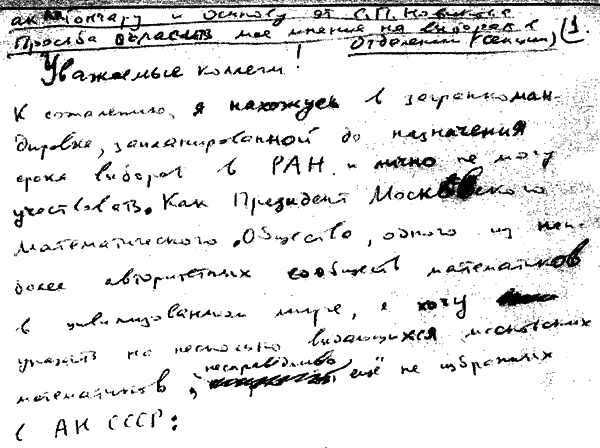 ак. Гончару и Осипову от С.П. Новикова
Просьба огласить мое мнение на выборах в
Отделении (секции) 1.
Уважаемые коллеги!
К сожалению, я нахожусь в загранкоман-
дировке, запланированной до назначения
срока выборов в РАН и лично не могу
участвовать. Как Президент Московского
Математического Общества, одного из наи-
более авторитетных сообществ математиков
в цивилизованном мире, я хочу
указать на несколько выдающихся московских
математиков, несправедливо ещё не избранных
в АН СССР: